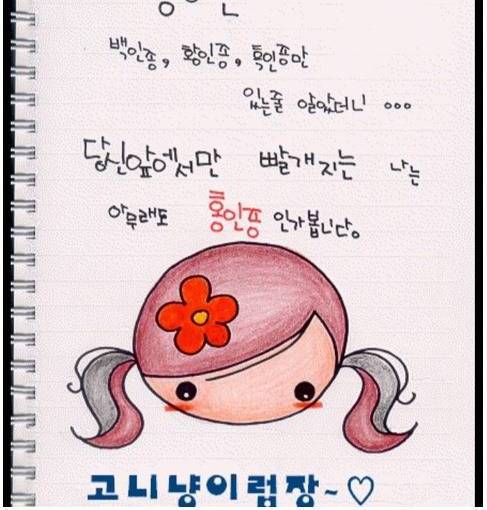 백인종, 황인종, 흑인종만
있는줄 알았더니 ...
당신앞에서만 빨개지는 나는
아무래도 홍인종 인가봅니다.
고니냥이럽짱~♡